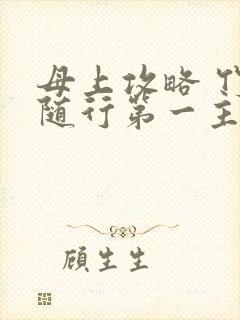 母上攻略 伩
随行第一主
顾生生